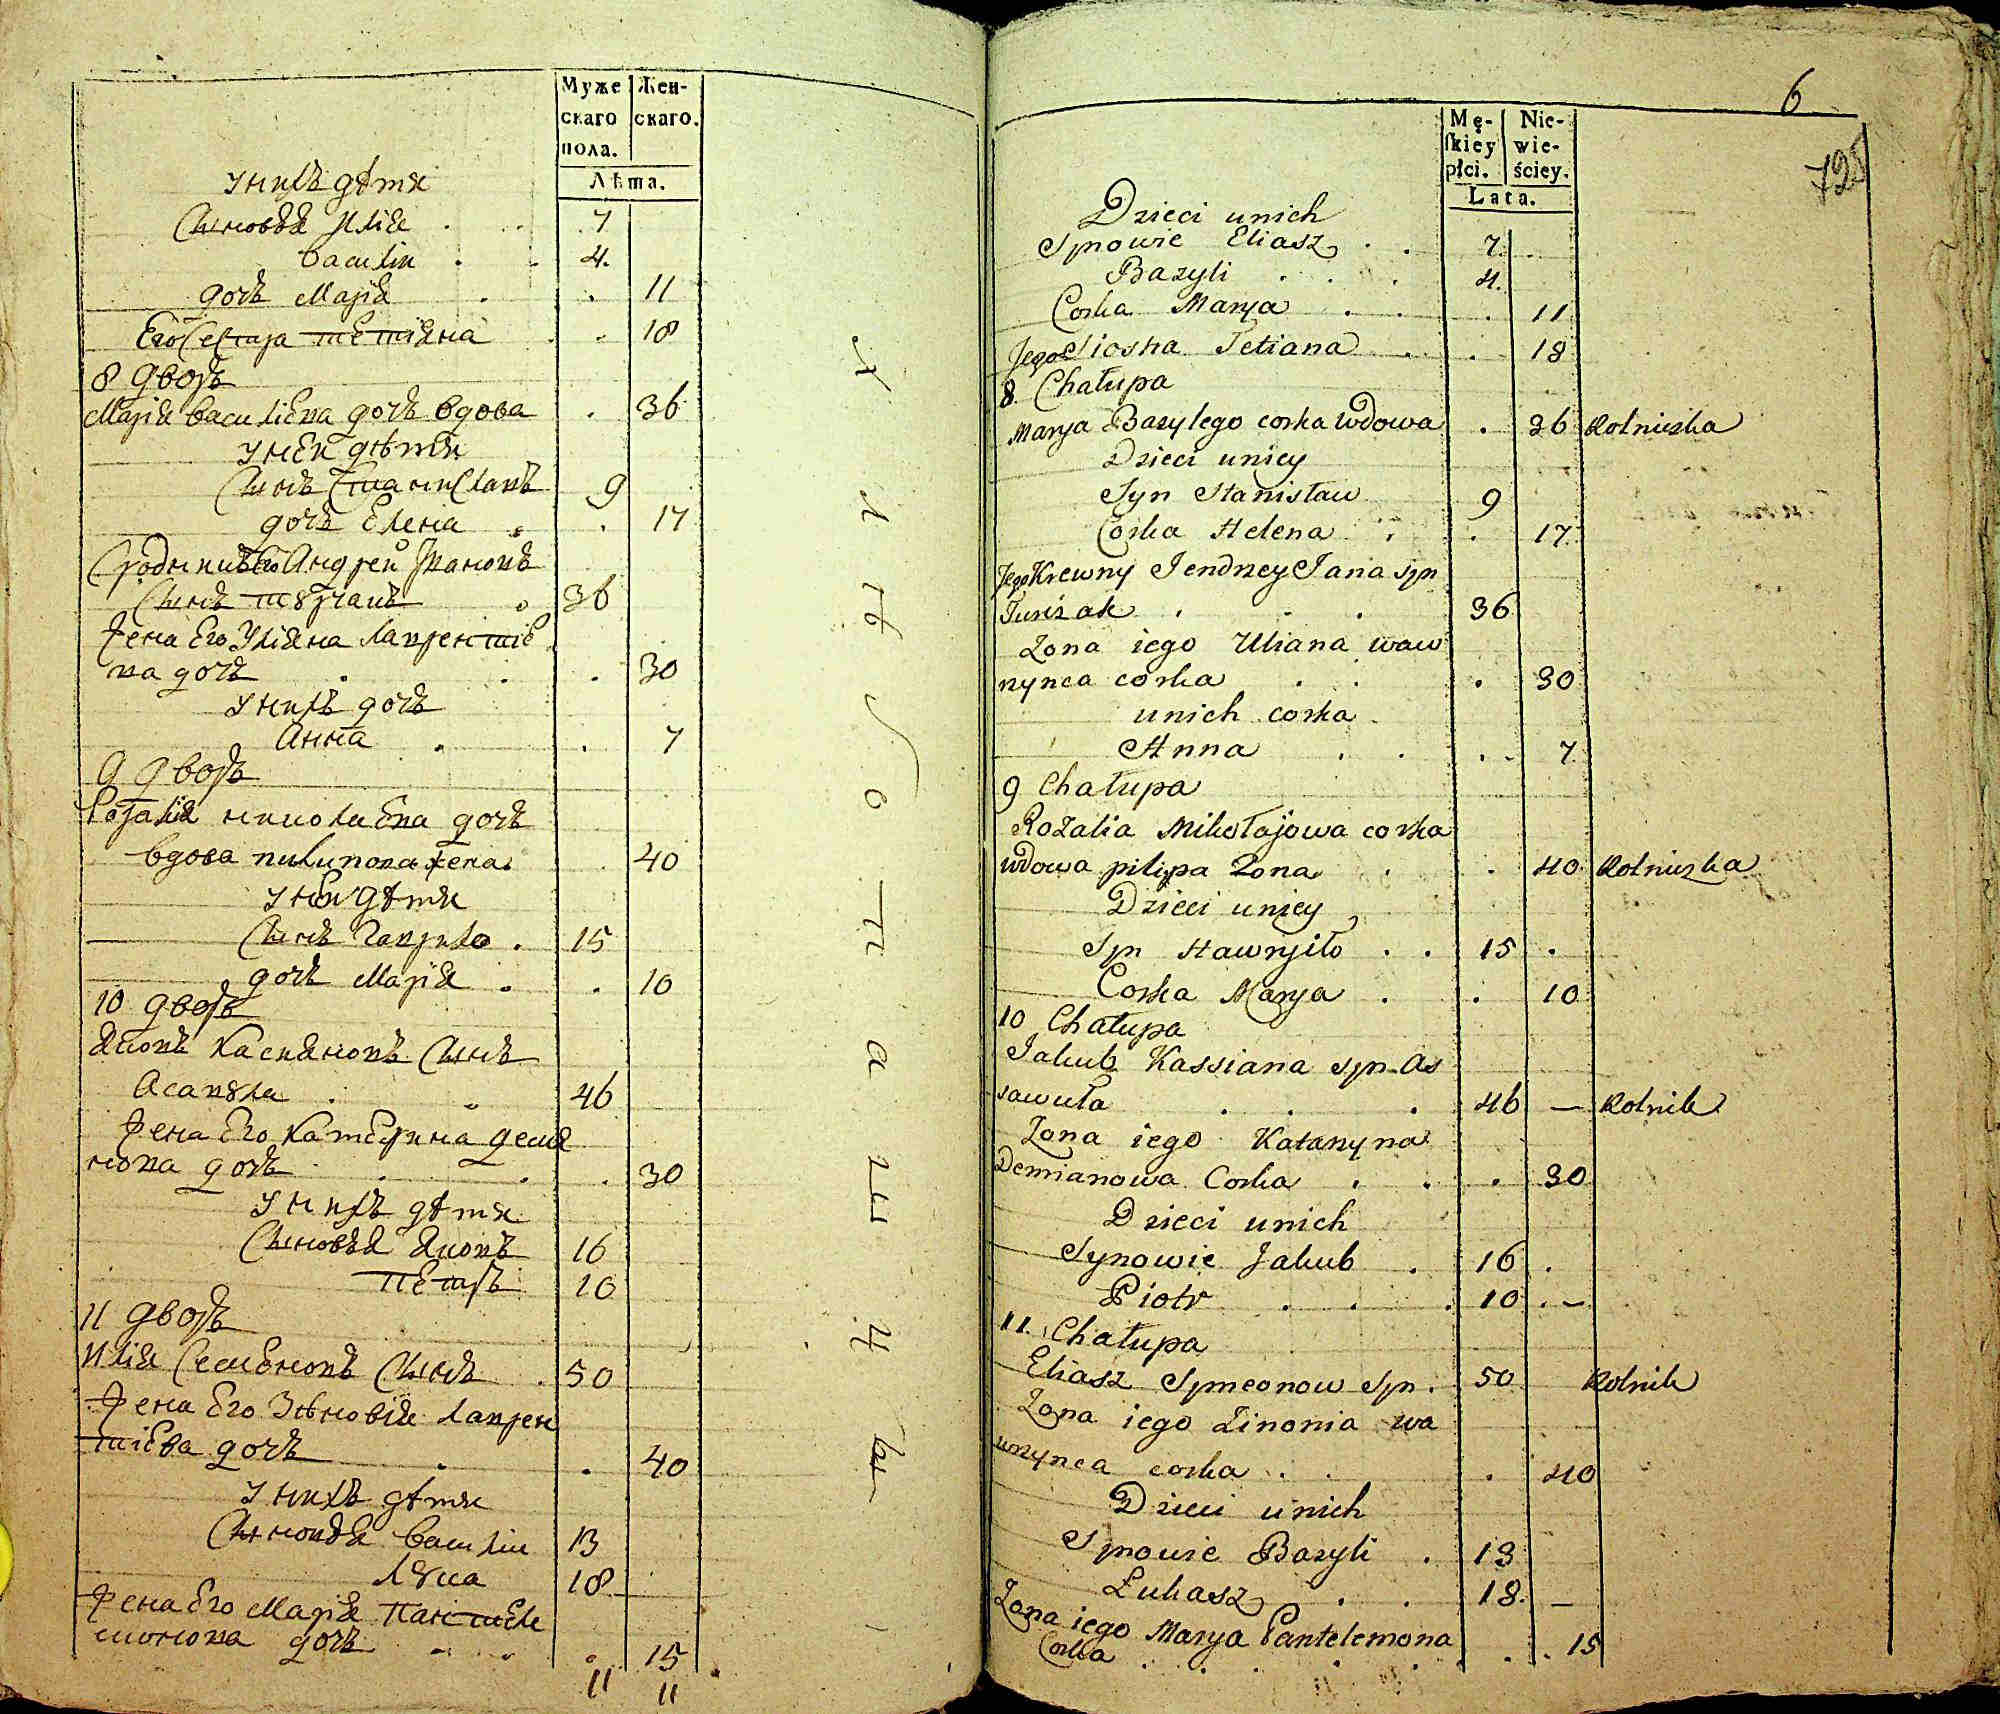 Муже
скаго
пола.
Жен-
скаго.
Лѣта.
У нихъ дѣти
Сыновья Илія . . 7
Василий . . 4.
дочь Марія . . 11
Его Сестра Тетіяна . . 18
8 дворъ
Марія Василіева дочь вдова . 36
У неи дѣти
Сынъ Станиславъ 9
дочь Елена . . 17
Сродникъ Его Андреи Ивановъ
Сынъ Турчакъ . 36
Жена Его Уліяна Лаврентіе
ва дочь . . . 30
У нихъ дочь
Анна . . 7
9 дворъ
Розалія николаева дочь
вдова пилипова жена . 40
У неи дѣти
Сынъ Гаврило . 15
дочь Марія . . 10
10 дворъ
Яковъ Касияновъ Сынъ
Асавула . . 46
Жена Его Катерина демя
нова дочь . . . 30
У нихъ дѣти
Сыновья Яковъ 16
Петръ 10
11 дворъ
Илія Семеновъ Сынъ . 50
Жена Его Зѣновія Лаврен
тіева дочь . . 40
У нихъ дѣти
Сыновья Василии 13
Лука 18
Жена Его Марія Пантеле
монова дочь . . . 15
11 11
6
725
Mę-
ſkiey
płci.
Nie-
wie-
ściey.
Lata.
Dzieci unich
Synowie Eliasz . . 7.
Bazyli . . . 4.
Corka Marya . . . 11
Jego Siostra Tetiana . . 18
8. Chałupa
Marya Bazylego corka wdowa . 36 Rolniczka
Dzieci uniey
Syn Stanisław 9
Corka Helena . . 17
Jego Krewny Jendrzey Jana syn
Turczak . . . 36
Zona iego Uliana waw
rzynca corka . . . 30
unich corka
Anna . . . 7
9 Chałupa
Rozalia Mikołajowa corka
wdowa pilipa Zona . . 40 Rolniczka
Dzieci uniey
Syn Hawryiło . . 15 .
Corka Marya . . 10
10 Chałupa
Jakub Kassiana syn As
sawuła . . . 46 — Rolnik
Zona iego Katarzyna
Demianowa Corka . . . 30
Dzieci unich
Synowie Jakub . 16 .
Piotr . . . 10 . —
11. Chałupa
Eliasz Symeonow Syn . 50 Rolnik
Zona iego Zinonia wa
wrzynca corka . . . 40
Dzieci unich
Synowie Bazyli . 13
Łukasz . . 18. —
Zona iego Marya Pantelemona
Corka . . . . . . 15